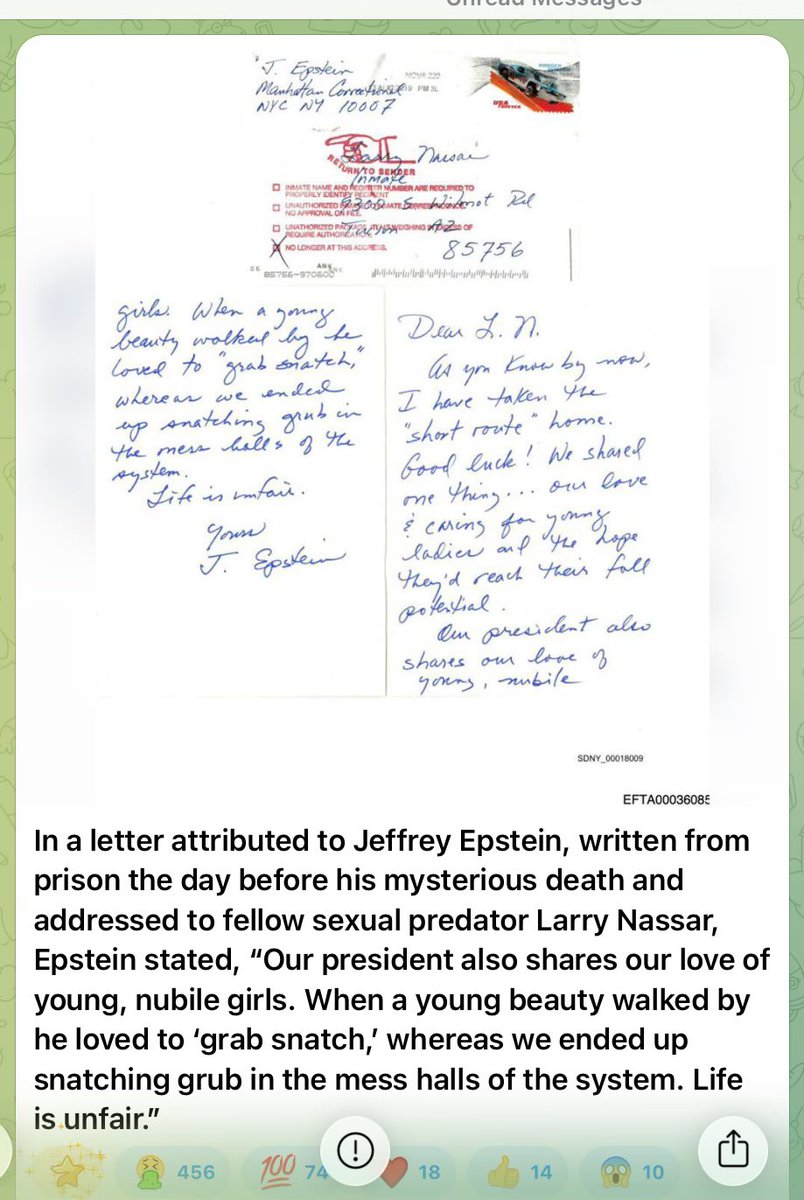 Unread Messages
J. Epstein
Manhattan Correctional
NYC NY 10007
NOVA 220
PM 3L
USA
FOREVER
RETURN TO SENDER
Larry Nassar
Inmate
9300 S. Wilmot Rd
Tucson AZ
85756
INMATE NAME AND REGISTER NUMBER ARE REQUIRED TO
PROPERLY IDENTIFY RECIPIENT
UNAUTHORIZED INMATE CORRESPONDENCE
NO APPROVAL ON FILE.
UNAUTHORIZED PACKAGE WEIGHING OF
REQUIRE AUTHORIZATION.
NO LONGER AT THIS ADDRESS.
85756-970600
Dear L. N.
As you know by now,
I have taken the
"short route" home.
Good luck! We shared
one thing... our love
& caring for young
ladies and the hope
they'd reach their full
potential.
Our president also
shares our love of
young, nubile
girls. When a young
beauty walked by he
loved to "grab snatch,"
whereas we ended
up snatching grub in
the mess halls of the
system.
Life is unfair.
Yours
J. Epstein
SDNY_00018009
EFTA00036085
In a letter attributed to Jeffrey Epstein, written from
prison the day before his mysterious death and
addressed to fellow sexual predator Larry Nassar,
Epstein stated, “Our president also shares our love of
young, nubile girls. When a young beauty walked by
he loved to ‘grab snatch,’ whereas we ended up
snatching grub in the mess halls of the system. Life
is unfair.”
456
100
74
18
14
10